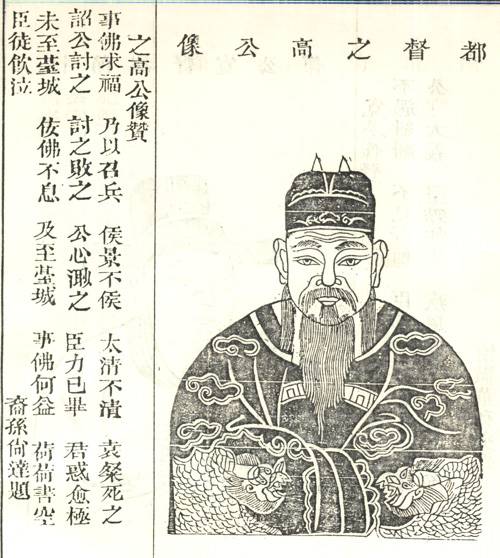 都督之高公像
之高公像贊
事佛求福 乃以召兵 侯景不侯 太清不清 袁粲死之
詔公討之 討之敗之 公心溉之 臣力已畢 君惑愈極
未至臺城 佞佛不息 及至臺城 事佛何益 荷荷書空
臣徒飲泣
裔孫尙達題